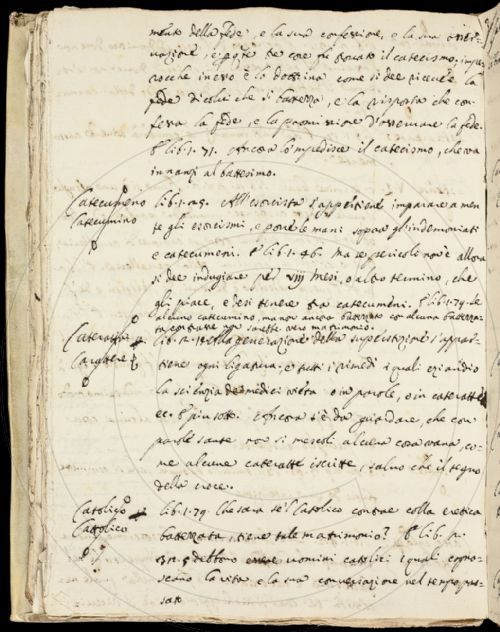 mento della fede, e la sua confessione, e la sua
e poste tre cose gli donato il catecismo, impe-
rocche in esso è la dottrina come si dee ricevere la
fede di colui che si battezza, e la risposta che con-
fessa la fede, e la promissione d'osservare la fede.
lib. 1. 71. ancora o impedisce il catecismo, che va
innanzi al battesimo.
Catecumeno
Catecumino
lib. 1. All' esorcista s'appartiene imparare a men
te gli esorcismi, e pone le mani sopra gl'indemoniati
e catecumeni. lib. 1. 46. Ma se pericolo non è allora
si dee indugiare per viij mesi, o altro termine, che
gli piace, e desi tenere tra catecumeni. lib. 1. 79. Se
alcuno catecumino, ma non ancora battezato con alcuna battezza-
ta contrae non sarebbe vero matrimonio.
Cateratta
Carattere
lib. generazione della superstizione s'appar-
tiene ogni ligatura, e tutti i rimedi i quali eziandio
la scienzia de medici vieta o in parole, o in cateratte
ec. E piu sotto. Ancora s'è da guardare, che con
parole sante non si mescoli alcuna cosa vana, co-
me alcune cateratte iscritte, salvo che il segno
della croce.
Catolico
Cattolico
lib. 1. 79. Che sara se 'l Catolico contrae colla eretica
battezzata, tiene tale matrimonio? lib.
debbono essere uomini cattolici i quali cogno-
scano la vita e la sua conversazione nel tempo pas-
sato